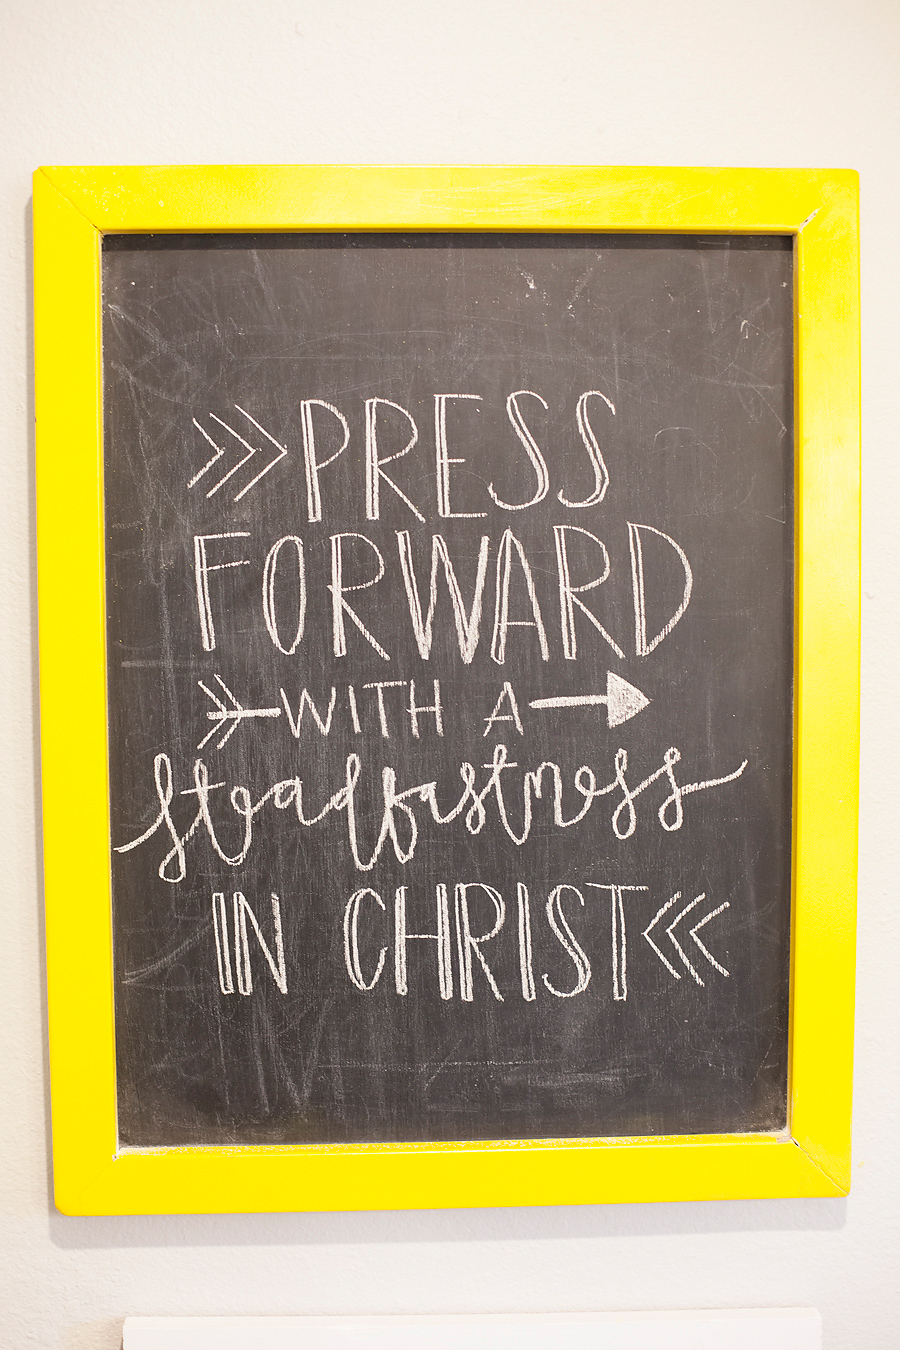 PRESS
FORWARD
WITH A
steadfastness
IN CHRIST